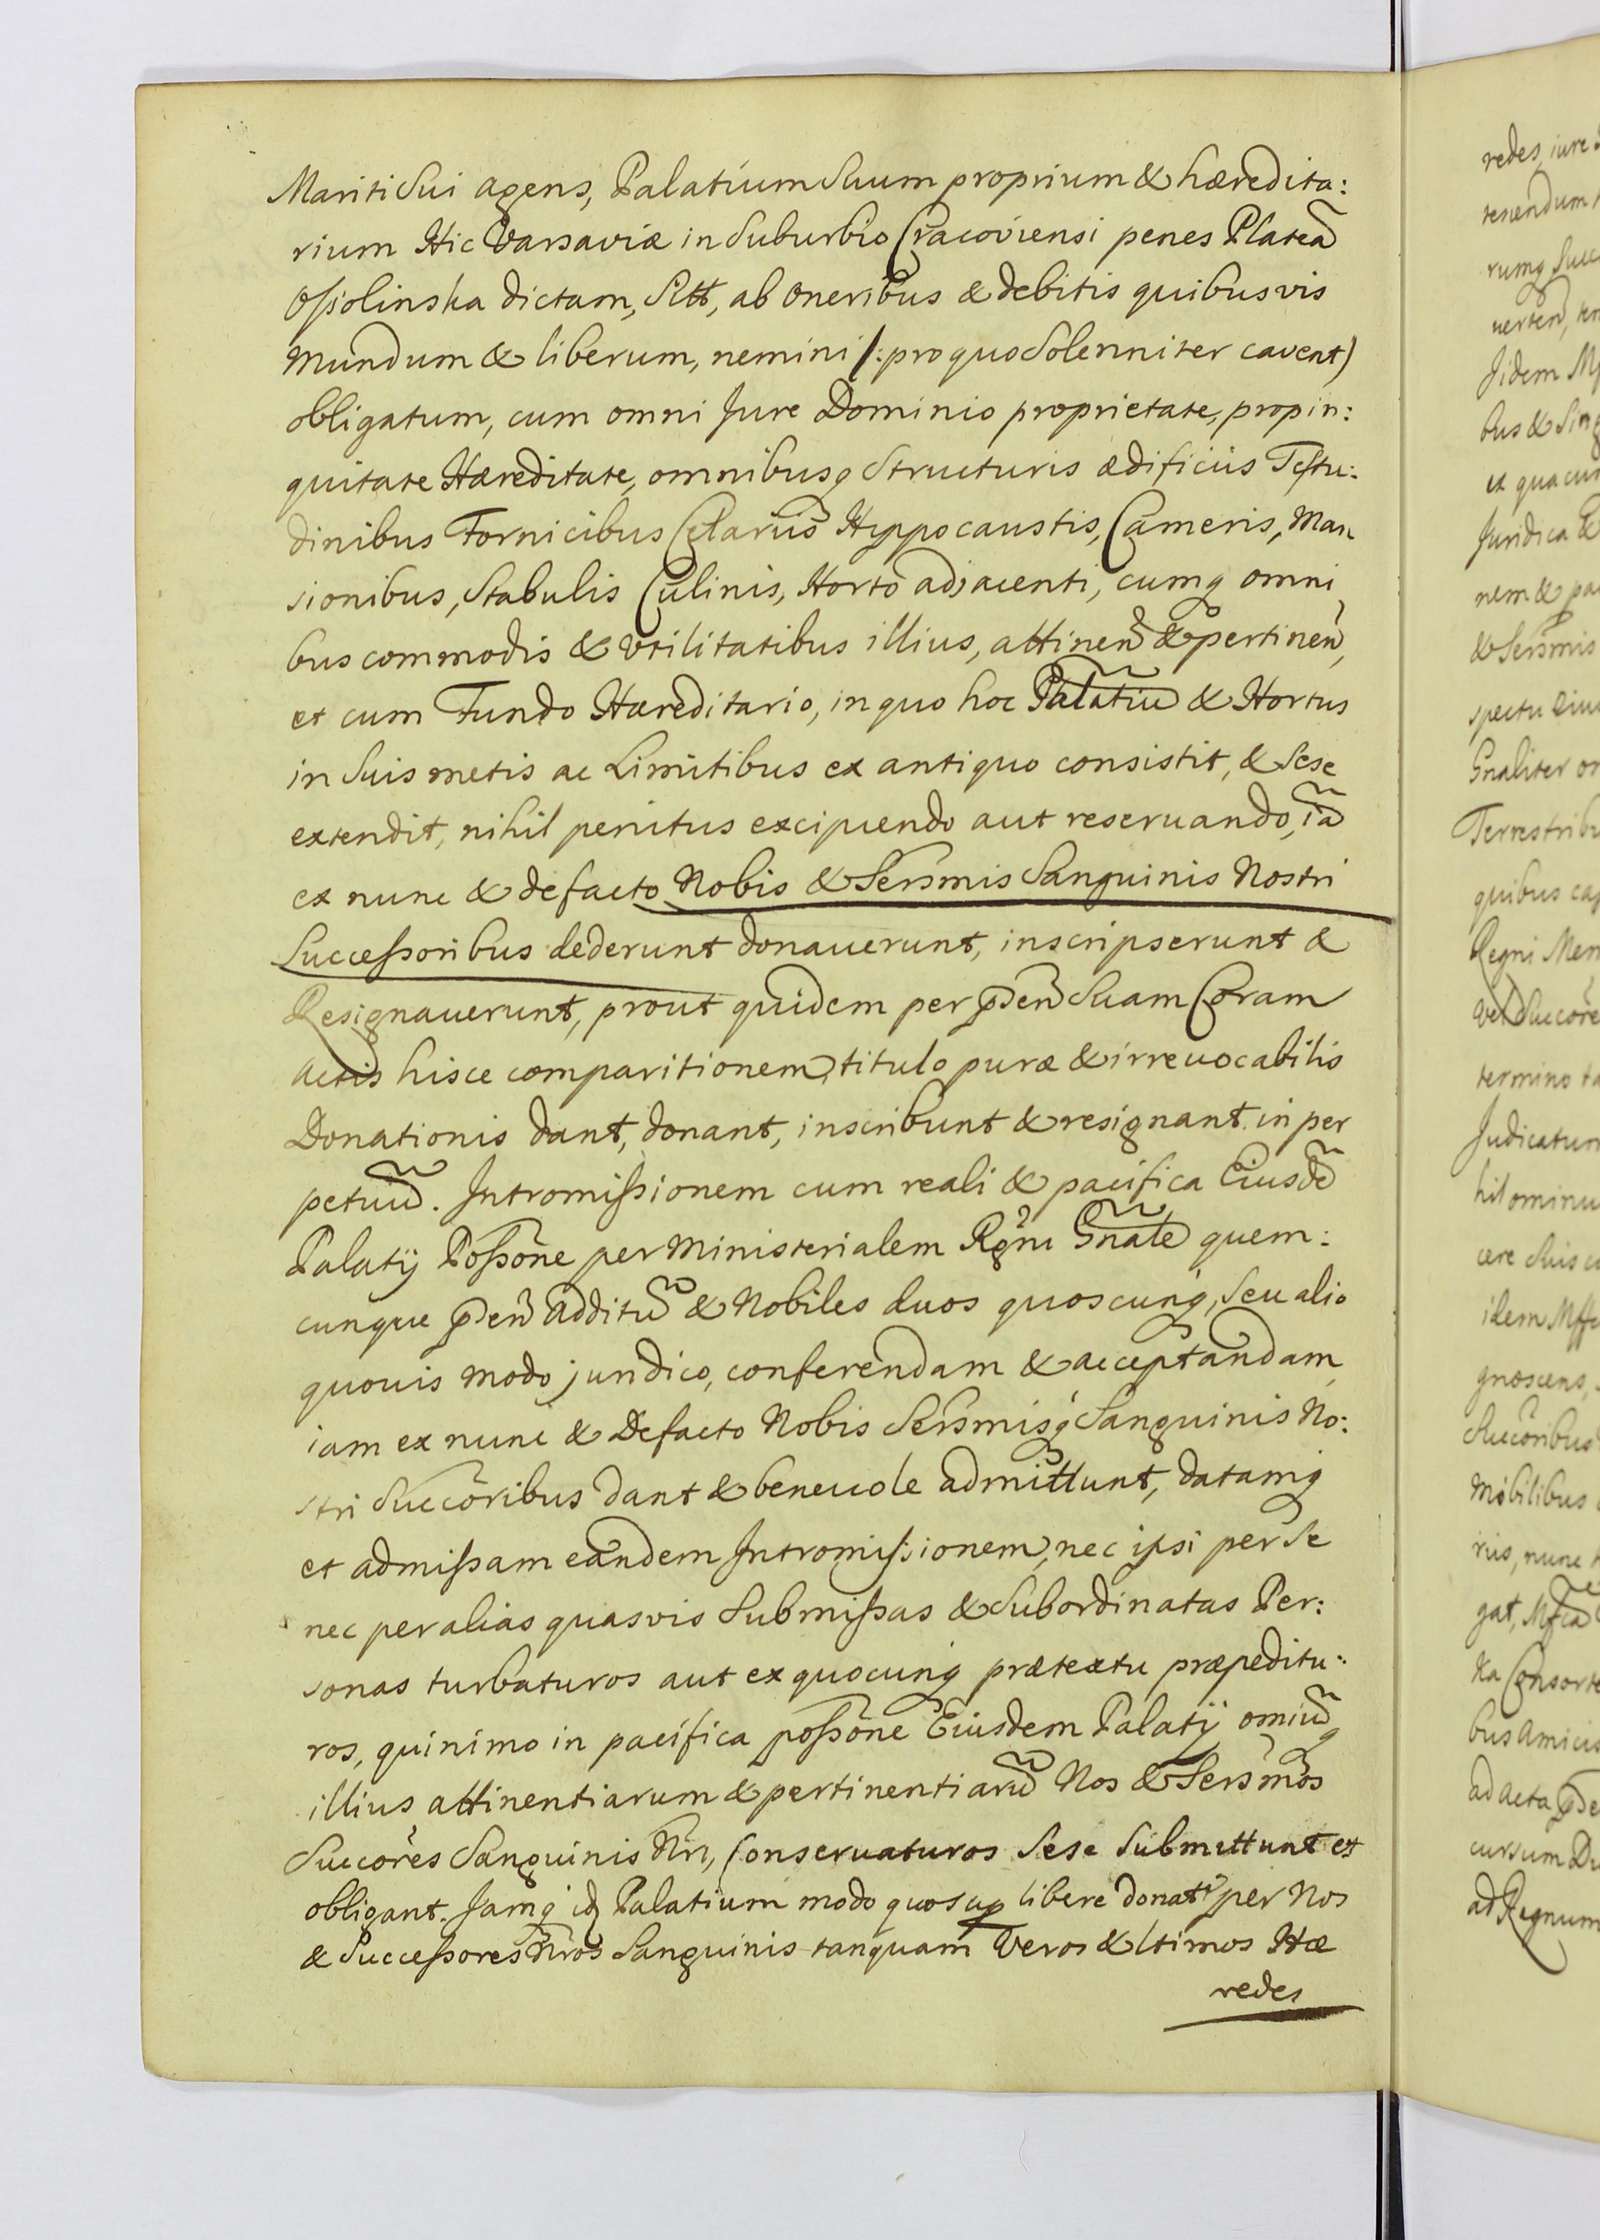 Mariti Sui agens, Palatium Suum proprium & hæredita:
rium Hic Varsaviæ in Suburbio Cracoviensi penes Plateã
Oſsolinska dictam, Sitt, ab oneribus & debitis quibusvis
mundum & liberum, nemini /: pro quo Solenniter cavent)
obligatum, cum omni Jure Dominio proprietate, propin:
quitate Hæreditate, omnibusq Structuris ædificiis Testu:
dinibus Fornicibus Celariis Hyppocaustis, Cameris, Man
sionibus, Stabulis Culinis, Horto adjacenti, cumq omni
bus commodis & Vtilitatibus illius, attinen̄ & pertinen̄,
et cum Fundo Hæreditario, in quo hoc Palatiũ & Hortus
in Suis metis ac Limitibus ex antiquo consistit, & Sese
extendit, nihil penitus excipiendo aut reseruando, iã
ex nunc & de facto Nobis & Sers̃mis Sanguinis Nostri
Succeſsoribus dederunt donauerunt, inscripserunt &
Resignauerunt, prout quidem per p̄sen̄ Suam Coram
Actis hisce comparitionem, titulo puræ & irreuocabilis
Donationis dant, donant, inscribunt & resignant in per
petuũ. Intromiſsionem cum reali & pacifica Eiusdẽ
Palatij Poſsõne per Ministerialem Rgñi Gñale quem:
cunque p̄sen̄ additũ & Nobiles duos quoscunq, Seu alio
quouis modo juridico, conferendam & acceptandam
iam ex nunc & Defacto Nobis Sers̃misq Sanguinis No:
stri Succõribus dant & beneuole admittunt, datamq
et admiſsam eandem Intromiſsionem, nec ipsi per Se
nec per alias quasvis Submiſsas & Subordinatas Per:
sonas turbaturos aut ex quocunq prætextu præpeditu:
ros, quinimo in pacifica poſsõne Eiusdem Palatij omiũq
illius attinentiarum & pertinentiarũ Nos & Sers̃mos
Succõres Sanguinis Nr̃i, Conseruaturos Sese Submittunt et
obligant. Jamq idq Palatium modo quo sup̱ libere donatũ per Nos
& Succeſsores Nr̃os Sanguinis tanquam Veros & ltimos Hæ
redes
redes, iure
tenendum
rumq Succ
Jidem
bus & Sing
et quacun
Juridica &
nem & pa
& Sers̃mis
spectu Eiu
Gñaliter
Terrestrib
quibus
Regni
vel Succõre
termino
Judicatum
cere Suis
idem
gnoscens,
Succõribus
Mobilibus
riis, nunc
gat,
Consorte
bus Amicis
ad Acta
cursum
ad Regnum